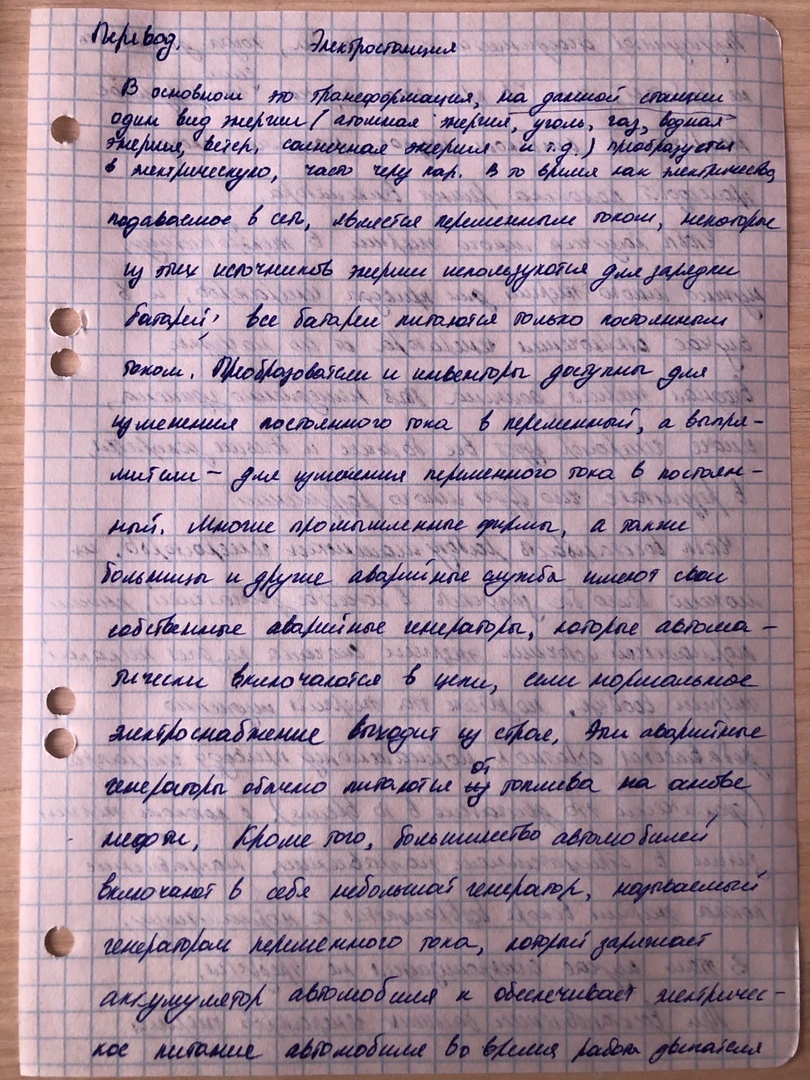 Перевод. Электростанция
В основном это трансформация, на данной станции
один вид энергии (атомная энергия, уголь, газ, водная
энергия, ветер, солнечная энергия и т.д.) преобразуется
в электрическую, часто через пар. В то время как электричество,
подаваемое в сеть, является переменным током, некоторые
из этих источников энергии используются для зарядки
батарей, все батареи питаются только постоянным
током. Преобразователи и инвенторы доступны для
изменения постоянного тока в переменный, а выпря-
мители - для изменения переменного тока в постоян-
ный. Многие промышленные фирмы, а также
больницы и другие аварийные службы имеют свои
собственные аварийные генераторы, которые автома-
тически включаются в цепи, если нормальное
электроснабжение выходит из строя. Эти аварийные
генераторы обычно питаются от топлива на основе
нефти. Кроме того, большинство автомобилей
включают в себя небольшой генератор, называемый
генератором переменного тока, который заряжает
аккумулятор автомобиля и обеспечивает электричес-
кое питание автомобиля во время работы двигателя